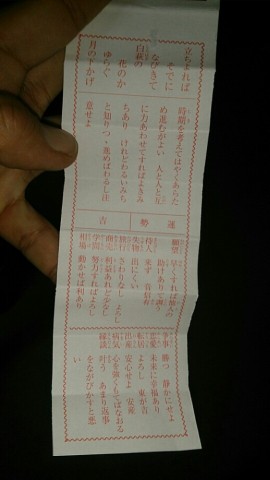 立ちよれば
そでに
なびきて
白萩の
花のか
ゆらぐ
月の下かげ
時期を考えてはやくあらた
め進むがよい 人と人と互
に力あわせてすればよきみ
ちあり けれどわるいみち
と知りつゝ進めばわるし注
意せよ
運
勢
吉
願望 早くすれば他人の
助けありて調う
待人 来ず 音信有
失物 出にくい
旅行 さわりなし よろし
商売 利益あれど少なし
学問 努力すればよろし
相場 動かせば利あり
争事 勝つ 静かにせよ
恋愛 未来に幸福あり
転居 よろし 東が吉
出産 安心せよ 安産
病気 心を強くもてばなおる
縁談 叶う あまり返事
をながびかすと悪
い